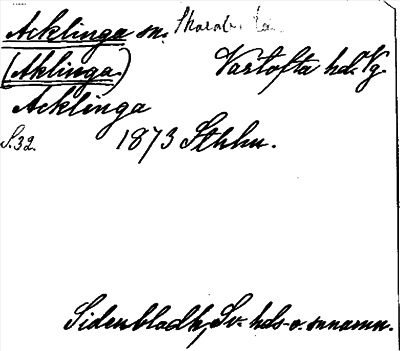 Acklinga sn. Skarab. lä.
(Aklinga) Vartofta hd. Vg.
Acklinga
S. 32. 1873 Sthlm.
Sidenbladh, Sv. hds- o. snnamn.